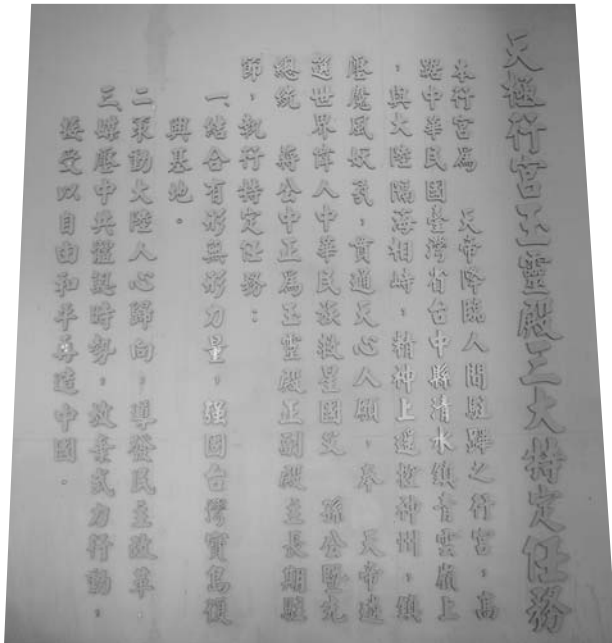 天極行宮玉靈殿三大特定任務
本行宮為　天帝降臨人間駐蹕之行宮，高
踞中華民國臺灣省台中縣清水鎮青雲嶺上
，與大陸隔海相峙，精神上遙控神州，鎮
壓魔風妖氛，貫通天心人願，奉　天帝遴
選世界偉人中華民族救星國父　孫公暨先
總統　蔣公中正為玉靈殿正副殿主長期駐
節，執行特定任務：
一、結合有形無形力量，強固台灣寶島復
興基地。
二、策動大陸人心歸向，導發民主改革。
三、媒壓中共體認時勢，放棄武力行動，
接受以自由和平再造中國。